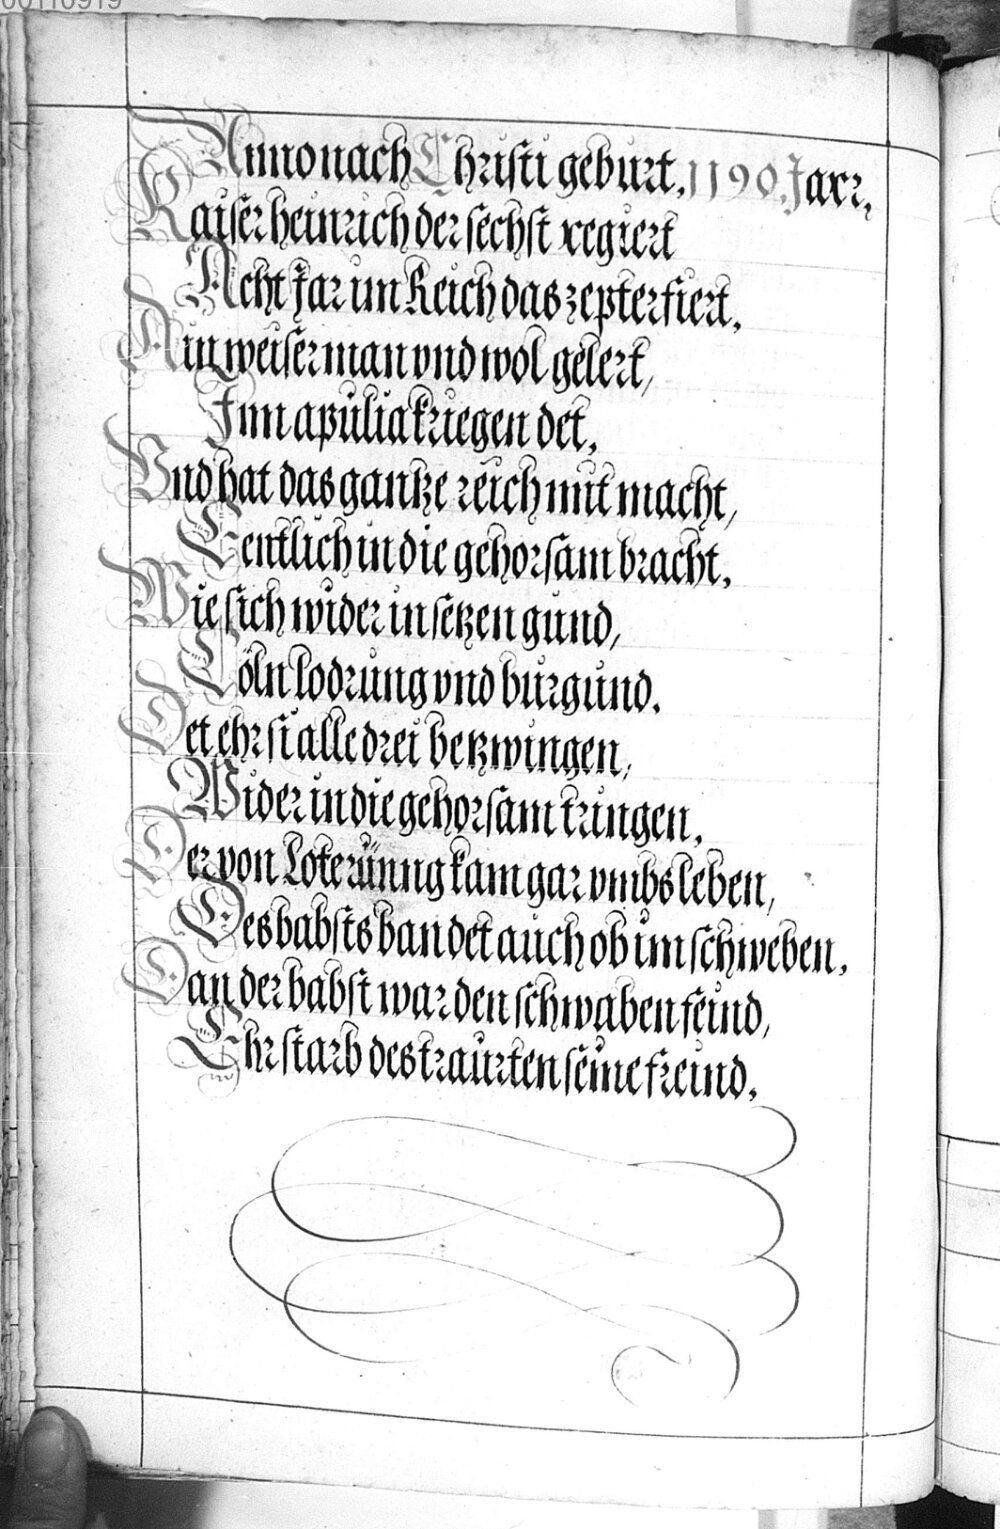 00110919
Anno nach Christi geburt. 1190. Jarr.
Kaiser heinrich der sechst regiert
Acht Jar im Reich das zepter fiert.
Ain weiser man vnd wol gelert,
Inn apulia kriegen det.
Vnd hat das gantze reich mit macht,
Centlich in die gehorsam bracht.
Wie sich wider in setzen gund,
Cöln Lodrung vnd burgund.
Det ehr si alle drei betzwingen,
Wider in die gehorsam tringen.
Der von Loterünng kam gar vmbs leben,
Des babsts ban det auch ob im schweben.
Dan der babst war den schwaben feind,
Ehr starb des traurten seine freind.